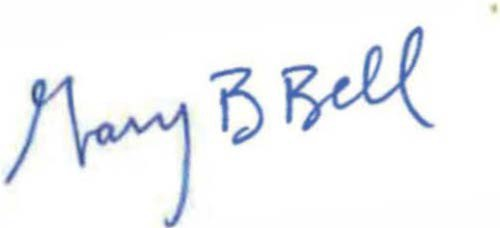 Gary B Bell